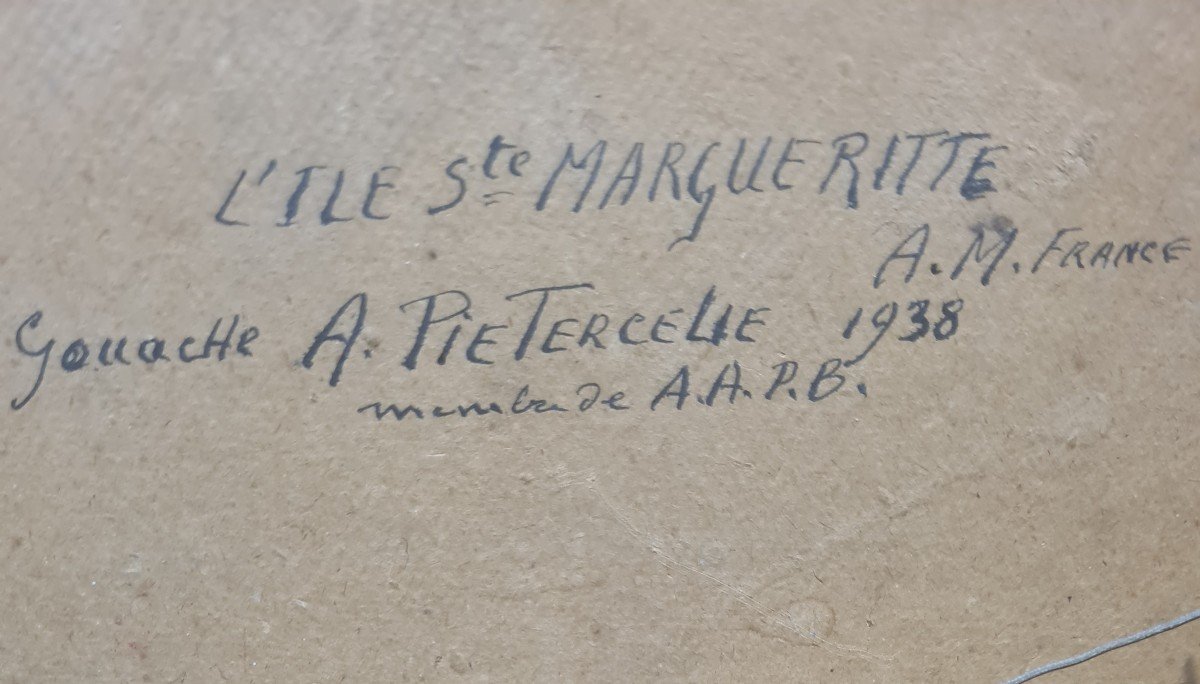 L'ILE Ste MARGUERITTE
A.M. FRANCE
Gouache A. PIETERCELIE 1938
membre de A.A.P.B.